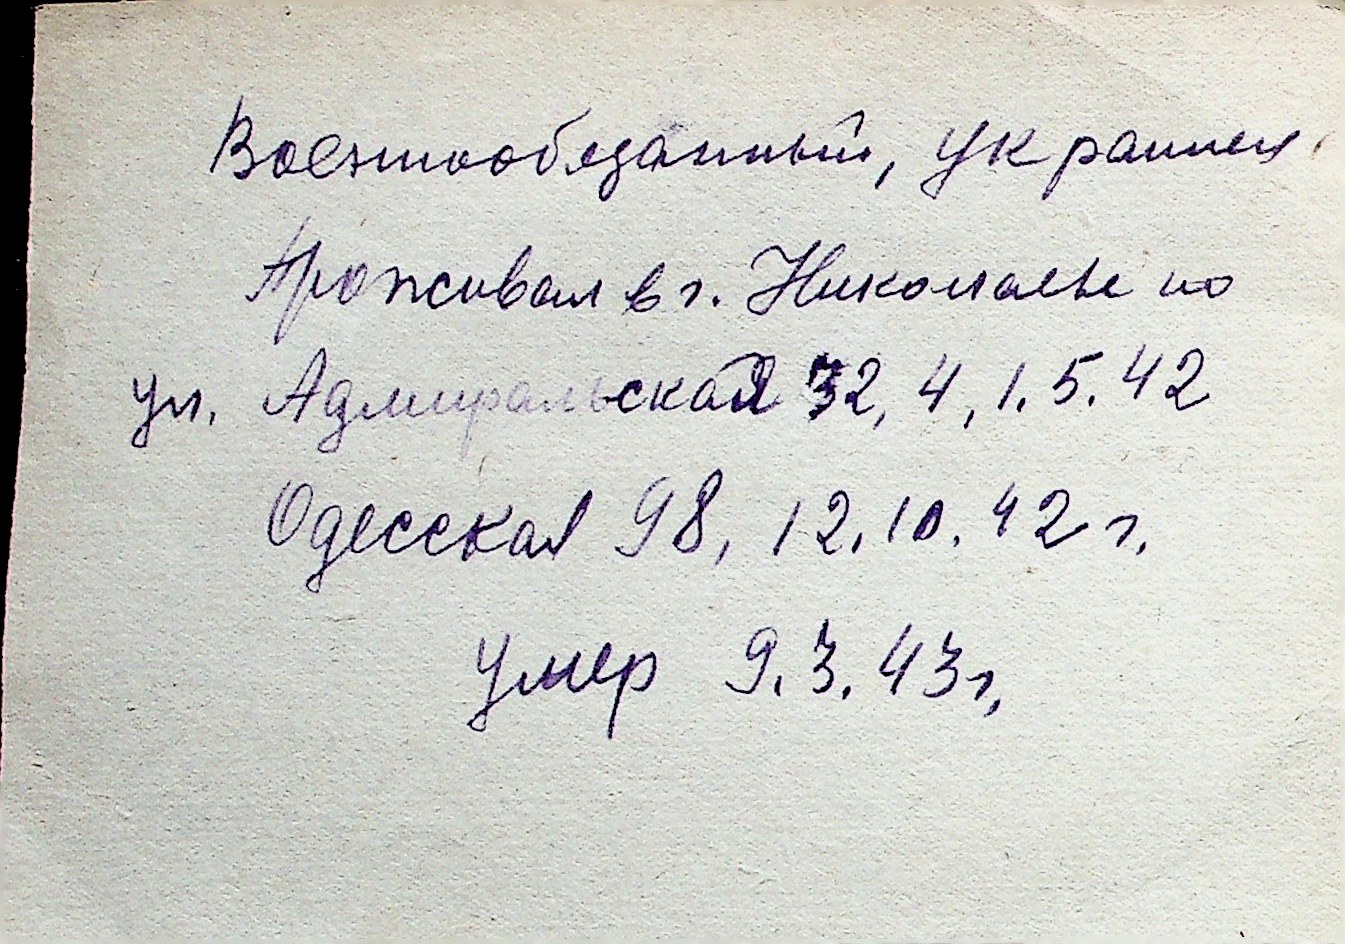 Военнообязанный, украинец
Проживал в г. Николаеве по
ул. Адмиральская 32, 4, 1.5.42
Одесская 98, 12.10.42 г.
умер 9.3.43 г.